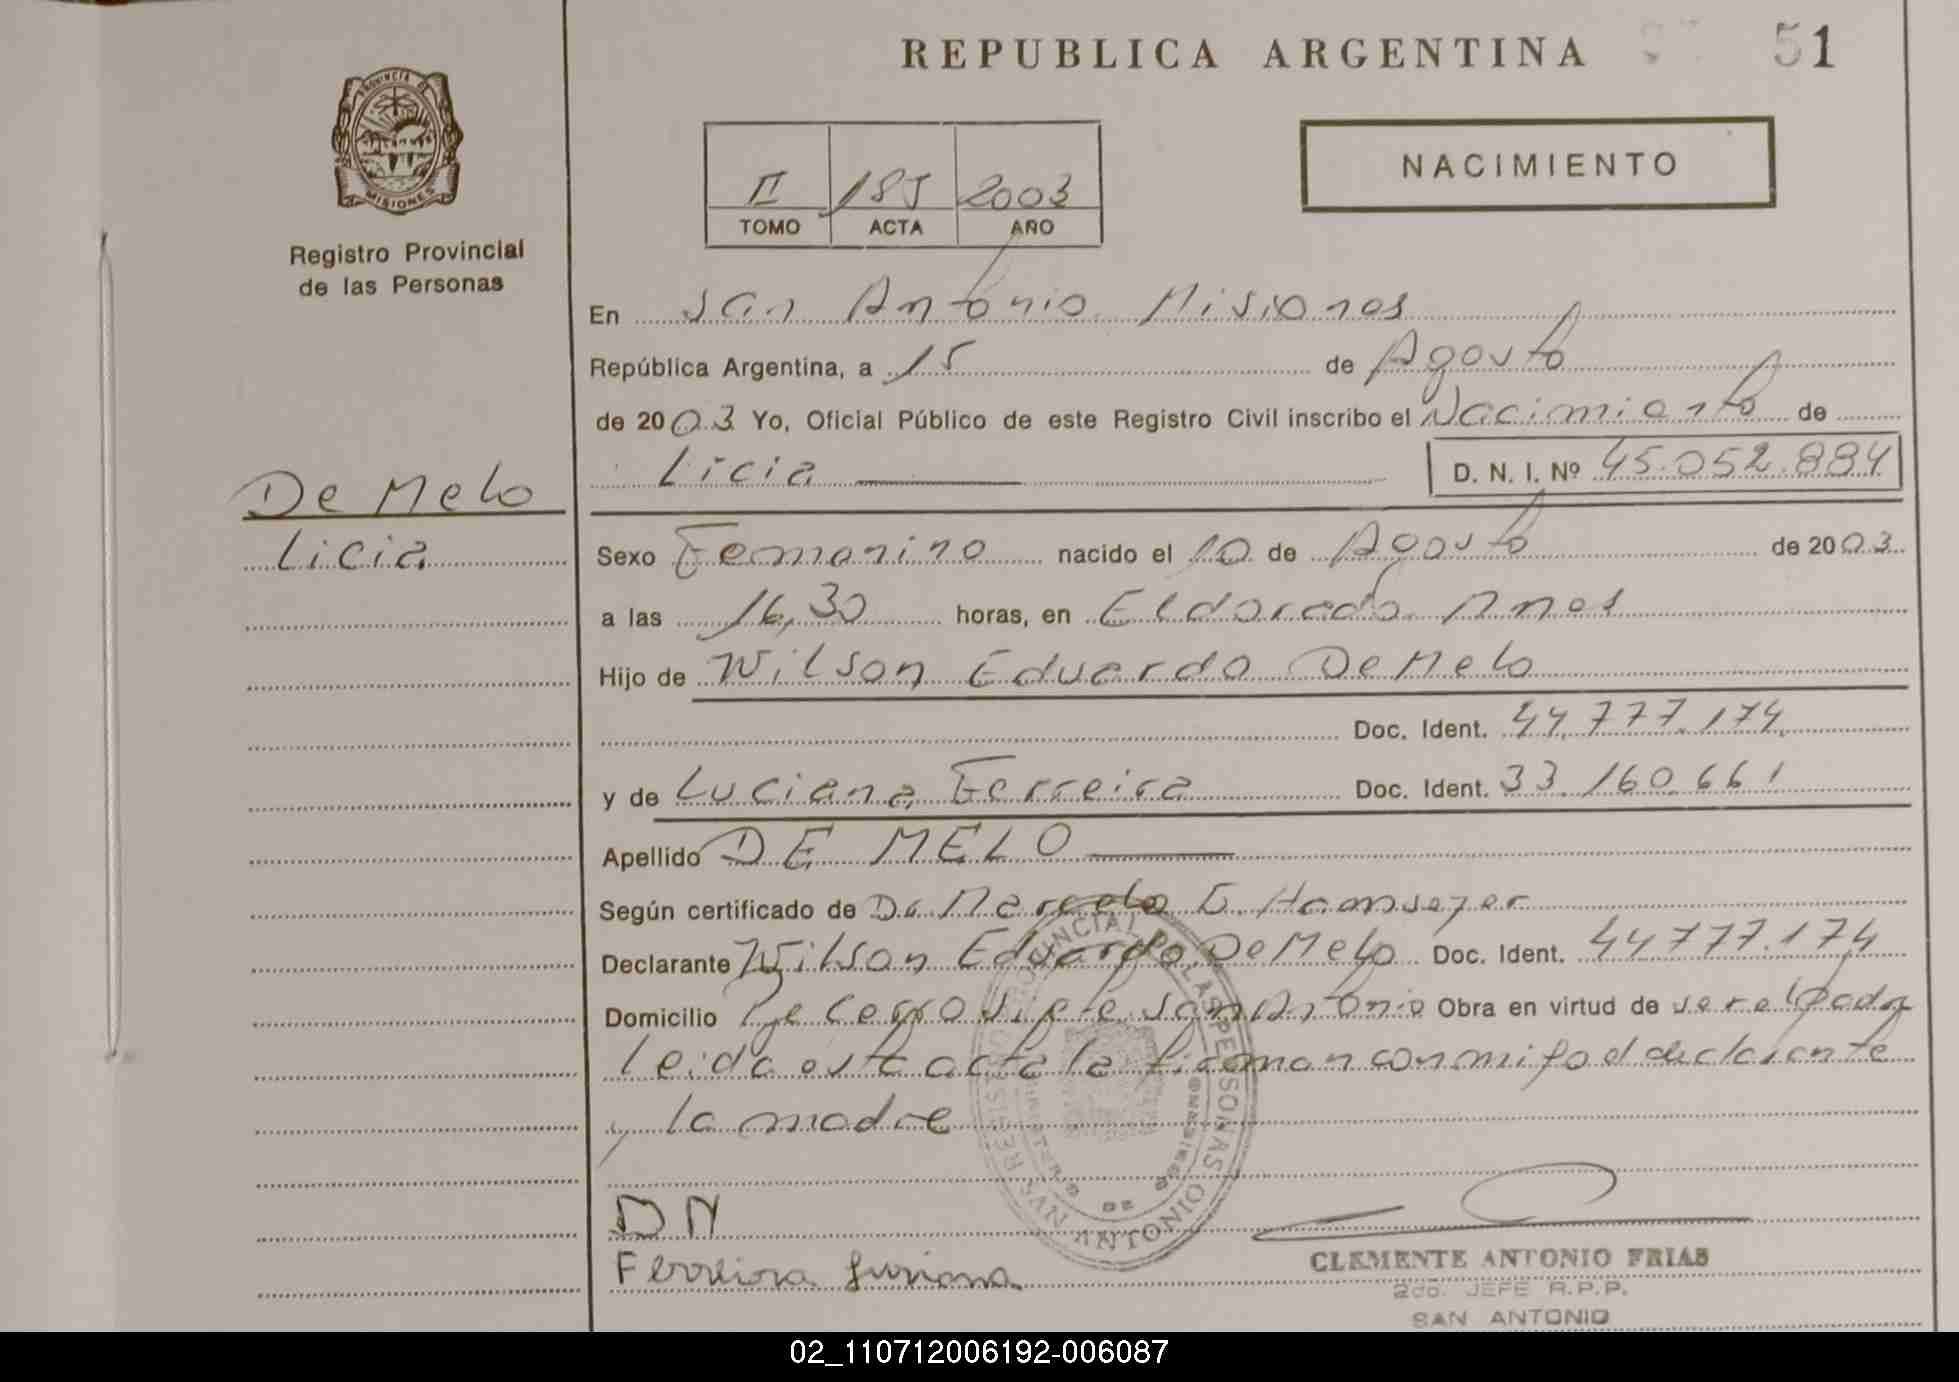 REPUBLICA ARGENTINA 51
PROVINCIA DE MISIONES
Registro Provincial
de las Personas
II 185 2003
TOMO ACTA AÑO
NACIMIENTO
En San Antonio Misiones
República Argentina, a 15 de Agosto
de 2003 Yo, Oficial Público de este Registro Civil inscribo el Nacimiento de
Licia D. N. I. Nº 45.052.884
De Melo
Licia
Sexo Femenino nacido el 10 de Agosto de 2003
a las 16,30 horas, en Eldorado Mnes
Hijo de Wilson Eduardo De Melo
Doc. Ident. 44.777.174
y de Luciana Ferreira Doc. Ident. 33.160.661
Apellido DE MELO
Según certificado de Dr. Marcelo
Declarante Wilson Eduardo De Melo Doc. Ident. 44777.174
Domicilio Pje Cerro San Antonio Obra en virtud de
leida esta acta la firman conmigo el declarante
y la madre
REGISTRO PROVINCIAL DE LAS PERSONAS
SAN ANTONIO
DM
Ferreira Luciana
CLEMENTE ANTONIO FRIAS
2do. JEFE R.P.P.
SAN ANTONIO
02_110712006192-006087